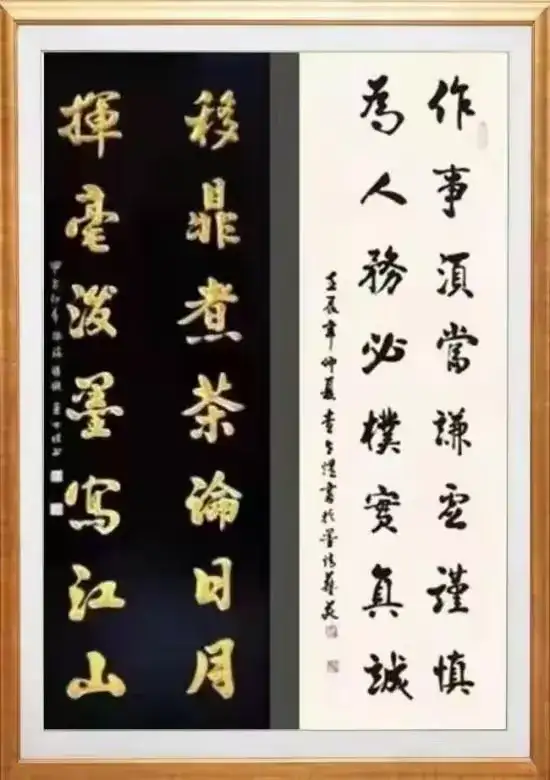 作事須當謙虛謹慎
為人務必樸實真誠
仲夏 書於墨 藝苑
移鼎煮茶論日月
揮毫潑墨寫江山